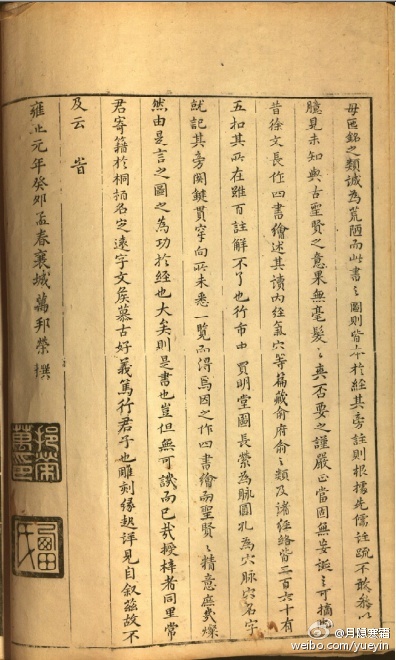 毋區銘之類誠為荒陋而此書之圖則皆本於經其旁註則根據先儒註疏不敢參以
臆見未知與古聖賢之意果無毫髮之爽否要之謹嚴正當固無妄誕之可摘
昔徐文長作四書繪述其讀內經氣穴等篇藏俞府俞之類及諸經絡皆三百六十有
五扣其所在雖百註解不了也行市中買明堂圖長縈為脉圓孔為穴脉穴名字
就記其旁関鍵貫穿向所未悉一覽而得焉因之作四書繪而聖賢之精意庶燦
然由是言之圖之為功於經也大矣則是書也豈但無可議而已哉授梓者同里常
君寄籍於桐栢名之遠字文矦慕古好義篤行君子也雕刻緣起詳見自叙茲故不
及云 旹
雍正元年癸卯孟春襄城萬邦榮撰
萬邦榮印
@月隱寒霜
weibo.com/yueyin